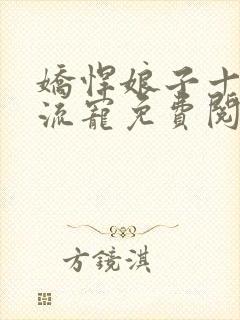 嬌悍娘子十
流寵免費閱
方鏡淇